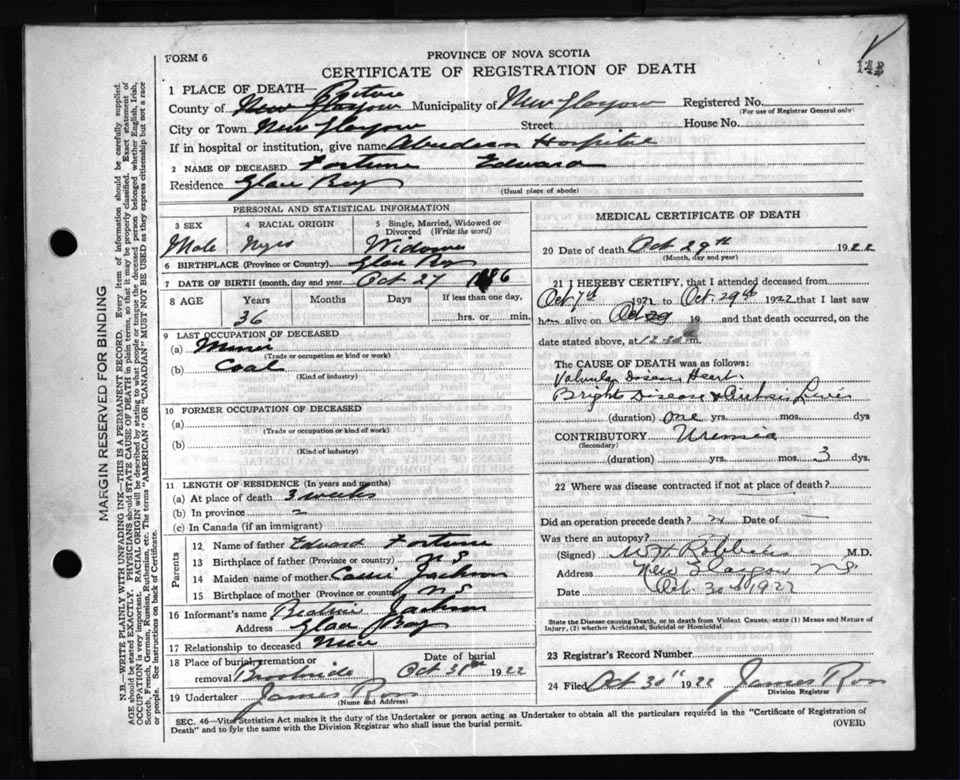 FORM 6
PROVINCE OF NOVA SCOTIA
CERTIFICATE OF REGISTRATION OF DEATH
1 PLACE OF DEATH— Pictou
County of New Glasgow Municipality of New Glasgow Registered No.
(For use of Registrar General only)
City or Town New Glasgow Street House No.
If in hospital or institution, give name Aberdeen Hospital
2 NAME OF DECEASED Fortune Edward
Residence Glace Bay
(Usual place of abode)
PERSONAL AND STATISTICAL INFORMATION
3 SEX
Male
4 RACIAL ORIGIN
Negro
5 Single, Married, Widowed or Divorced (Write the word)
6 BIRTHPLACE (Province or Country) Glace Bay
7 DATE OF BIRTH (month, day and year) Oct 27 1886
8 AGE Years Months Days If less than one day,
36 hrs. or min.
9 LAST OCCUPATION OF DECEASED
(a) Miner
(Trade or occupation or kind or work)
(b) Coal
(Kind of industry)
10 FORMER OCCUPATION OF DECEASED
(a)
(Trade or occupation or kind of work)
(b)
(Kind of industry)
11 LENGTH OF RESIDENCE (In years and months)
(a) At place of death 3 weeks
(b) In province
(c) In Canada (if an immigrant)
Parents
12 Name of father Edward Fortune
13 Birthplace of father (Province or country) N S
14 Maiden name of mother Cassie Jackson
15 Birthplace of mother (Province or country) N S
16 Informant's name Jackson
Address Glace Bay
17 Relationship to deceased
18 Place of burial, cremation or removal
Date of burial
Oct 31st 1922
19 Undertaker James Ross
(Name and Address)
MEDICAL CERTIFICATE OF DEATH
20 Date of death Oct 29th 1922
(Month, day and year)
21 I HEREBY CERTIFY, that I attended deceased from
Oct 7th 1922 to Oct. 29th 1922 that I last saw
him alive on Oct 29 19 and that death occurred, on
date stated above, at m.
The CAUSE OF DEATH was as follows:
Valvular Disease Heart
Brights Disease & Cirrhosis Liver
(duration) one yrs. mos. dys
CONTRIBUTORY Uremia
(Secondary)
(duration) yrs. mos. 3 dys.
22 Where was disease contracted if not at place of death?
Did an operation precede death? Date of —
Was there an autopsy?
(Signed) M.D.
Address New Glasgow N.S.
Date Oct. 30th 1922
State the Disease causing Death, or in death from Violent Causes, state (1) Means and Nature of Injury, (2) whether Accidental, Suicidal or Homicidal.
23 Registrar's Record Number
24 Filed Oct 30th 1922 James Ross
Division Registrar
SEC. 46—Vital Statistics Act makes it the duty of the Undertaker or person acting as Undertaker to obtain all the particulars required in the "Certificate of Registration of
Death" and to fyle the same with the Division Registrar who shall issue the burial permit.
(OVER)
MARGIN RESERVED FOR BINDING
N.B.—WRITE PLAINLY WITH UNFADING INK—THIS IS A PERMANENT RECORD. Every item of information should be carefully supplied.
AGE should be stated EXACTLY. PHYSICIANS should STATE CAUSE OF DEATH in plain terms, so that it may be properly classified. Exact statement of
OCCUPATION is very important. RACIAL ORIGIN will be described by stating to what people or tongue the deceased person belonged whether English, Irish,
Scotch, French, German, Russian, Ruthenian, etc. The terms "AMERICAN" OR "CANADIAN" MUST NOT BE USED as they express citizenship but not a race
or people. See instructions on back of Certificate.